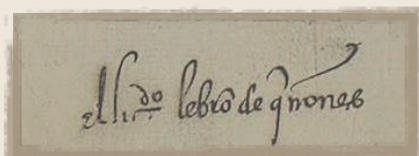 el li.do lebrō de q̄nones